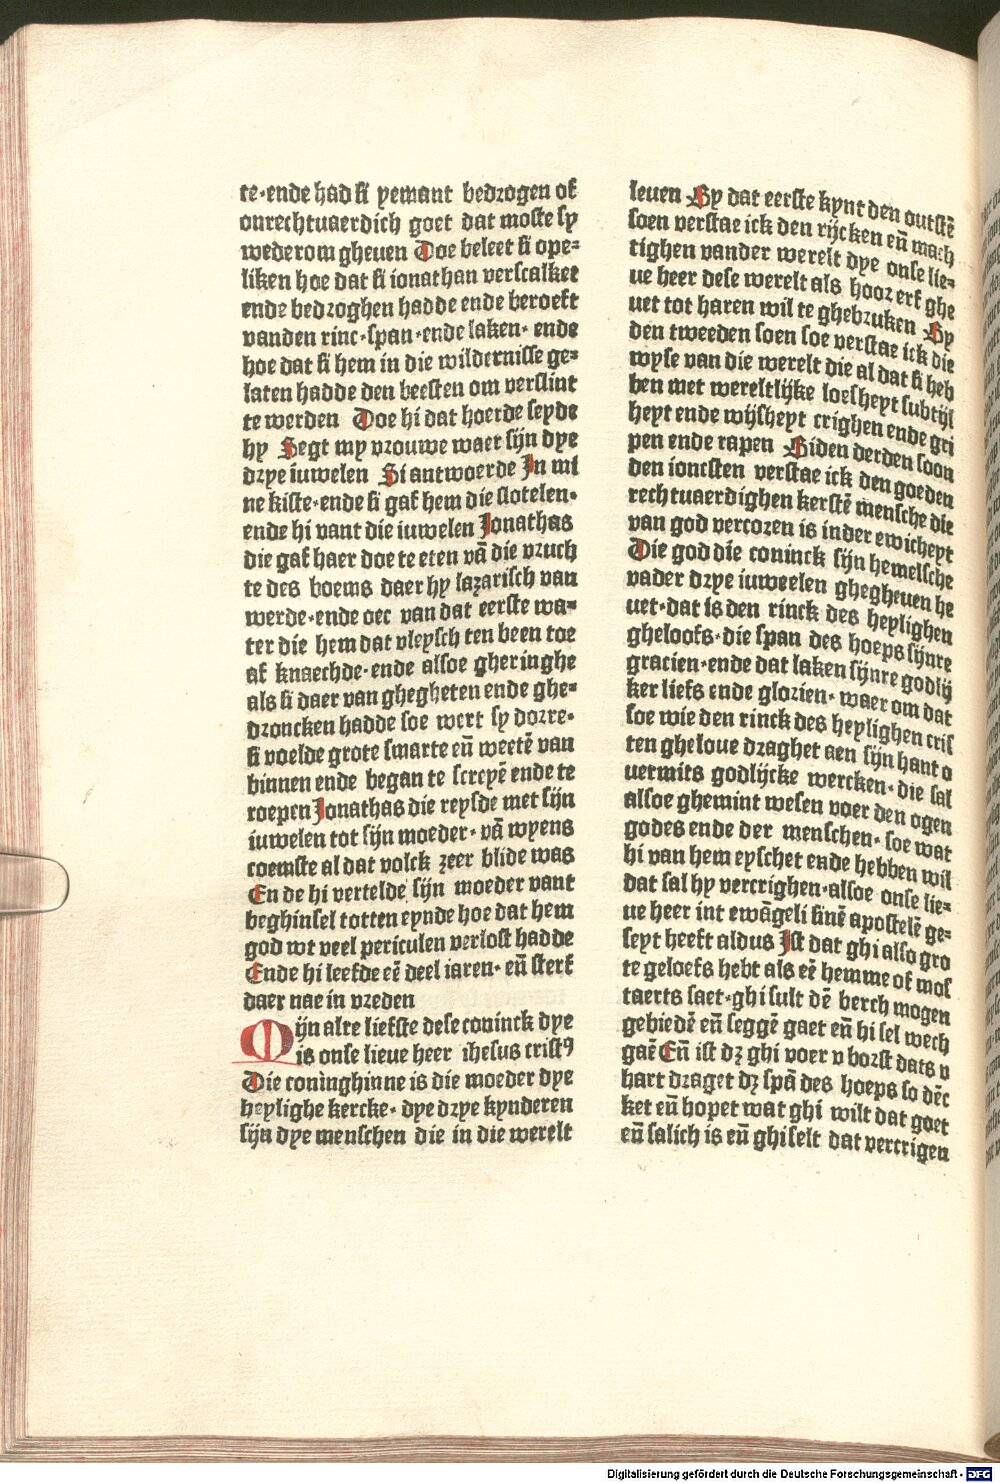 te·ende had si yemant bedrogen of
onrechtuaerdich goet dat moste sy
wederom gheuen Doe beleet si ope⸗
liken hoe dat si ionathan verscalket
ende bedroghen hadde ende beroeft
vanden rinc·span·ende laken· ende
hoe dat si hem in die wildernisse ge⸗
laten hadde den beesten om verslint
te werden Doe hi dat hoerde seyde
hy Segt my vrouwe waer sijn dye
drye iuwelen Si antwoerde In mi
ne kiste·ende si gaf hem die slotelen·
ende hi vant die iuwelen Jonathas
die gaf haer doe te eten vā die vruch
te des boems daer hy lazarisch van
werde·ende oec van dat eerste wa⸗
ter die hem dat vleysch ten been toe
af knaechde·ende alsoe gheringhe
als si daer van ghegheten ende ghe⸗
droncken hadde soe wert sy dorre·
si voelde grote smarte eñ weetē van
binnen ende began te screyē ende te
roepen Jonathas die reysde met sijn
iuwelen tot sijn moeder· vā wyens
coemste al dat volck zeer blide was
Ende hi vertelde sijn moeder vant
beghinsel totten eynde hoe dat hem
god wt veel periculen verlost hadde
Ende hi leefde eē deel iaren· eñ sterf
daer nae in vreden
Mijn alre liefste dese coninck dye
is onse lieue heer ihesus cristꝰ
Die coninghinne is die moeder dye
heylighe kercke· dye drye kynderen
sijn dye menschen die in die werelt
leuen By dat eerste kynt den outstē
soen verstae ick den rijcken eñ mach
tighen vander werelt dye onse lie⸗
ue heer dese werelt als hoor erf ghe
uet tot haren wil te ghebruken By
den tweeden soen soe verstae ick die
wyse van die werelt die al dat si heb
ben met wereltlijke loesheyt subtijl
heyt ende wijsheyt crighen ende gri
pen ende rapen Biden derden soon
den ioncsten verstae ick den goeden
rechtuaerdighen kerstē mensche die
van god vercoren is inder ewicheyt
Die god die coninck sijn hemelsche
vader drye iuweelen ghegheuen he
uet·dat is den rinck des heylighen
gheloofs·die span des hoeps sijnre
gracien·ende dat laken sijnre godlij
ker liefs ende glorien· waer om dat
soe wie den rinck des heylighen cris
ten gheloue draghet aen sijn hant o
uermits godlijcke wercken· die sal
alsoe ghemint wesen voer den ogen
godes ende der menschen· soe wat
hi van hem eyschet ende hebben wil
dat sal hy vercrighen·alsoe onse lie⸗
ue heer int ewāgeli sinē apostelē ge⸗
seyt heeft aldus Ist dat ghi also gro
te geloefs hebt als eē hemme of mos
taerts saet·ghi sult dē berch mogen
gebiedē eñ seggē gaet eñ hi sel wech
gaē Eñ ist dꝫ ghi voer v borst dats v
hart draget dꝫ spā des hoeps so dēc
ket eñ hopet wat ghi wilt dat goet
eñ salich is eñ ghi selt dat vercrigen
Digitalisierung gefördert durch die Deutsche Forschungsgemeinschaft - DFG